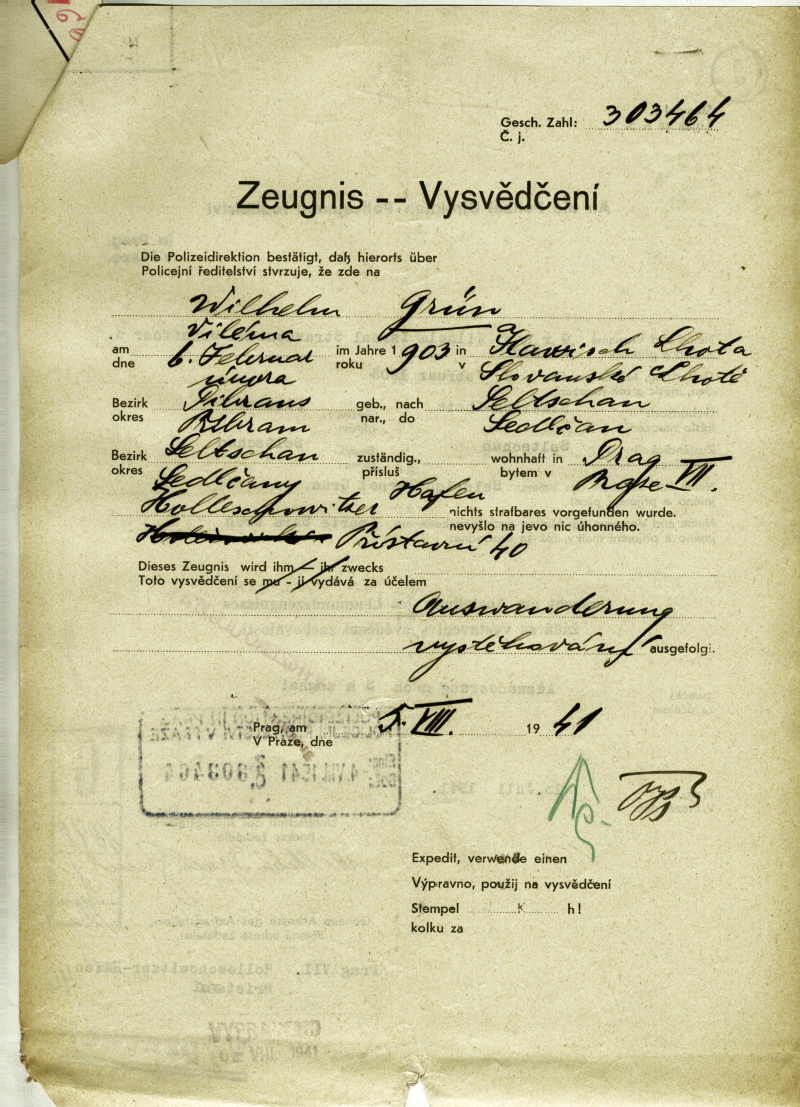 Gesch. Zahl: 303464
Č. j.
Zeugnis -- Vysvědčení
Die Polizeidirektion bestätigt, daß hierorts über
Policejní ředitelství stvrzuje, že zde na
Wilhelm Grün
Viléma
am 6. Februar im Jahre 1903 in Slawisch Lhota
dne února roku v Slovanské Lhotě
Bezirk Pibrans geb., nach Seltschan
okres Příbram nar., do Sedlčan
Bezirk Seltschan zuständig., wohnhaft in Prag VII.
okres Sedlčany přísluš bytem v Praze
Holleschowitzer Hafen nichts strafbares vorgefunden wurde.
nevyšlo na jevo nic úhonného.
Přístavní 40
Dieses Zeugnis wird ihm - ihr zwecks
Toto vysvědčení se mu - jí vydává za účelem
Auswanderung
vystěhování ausgefolgt.
Prag, am 5. VIII. 1941
V Praze, dne
POLICEJNÍ ŘEDITELSTVÍ V PRAZE
4. VIII. 1941 303464
Expedit, verwende einen
Výpravno, použij na vysvědčení
Stempel K h!
kolku za
Prag VII. Holleschowitzer-Hafen